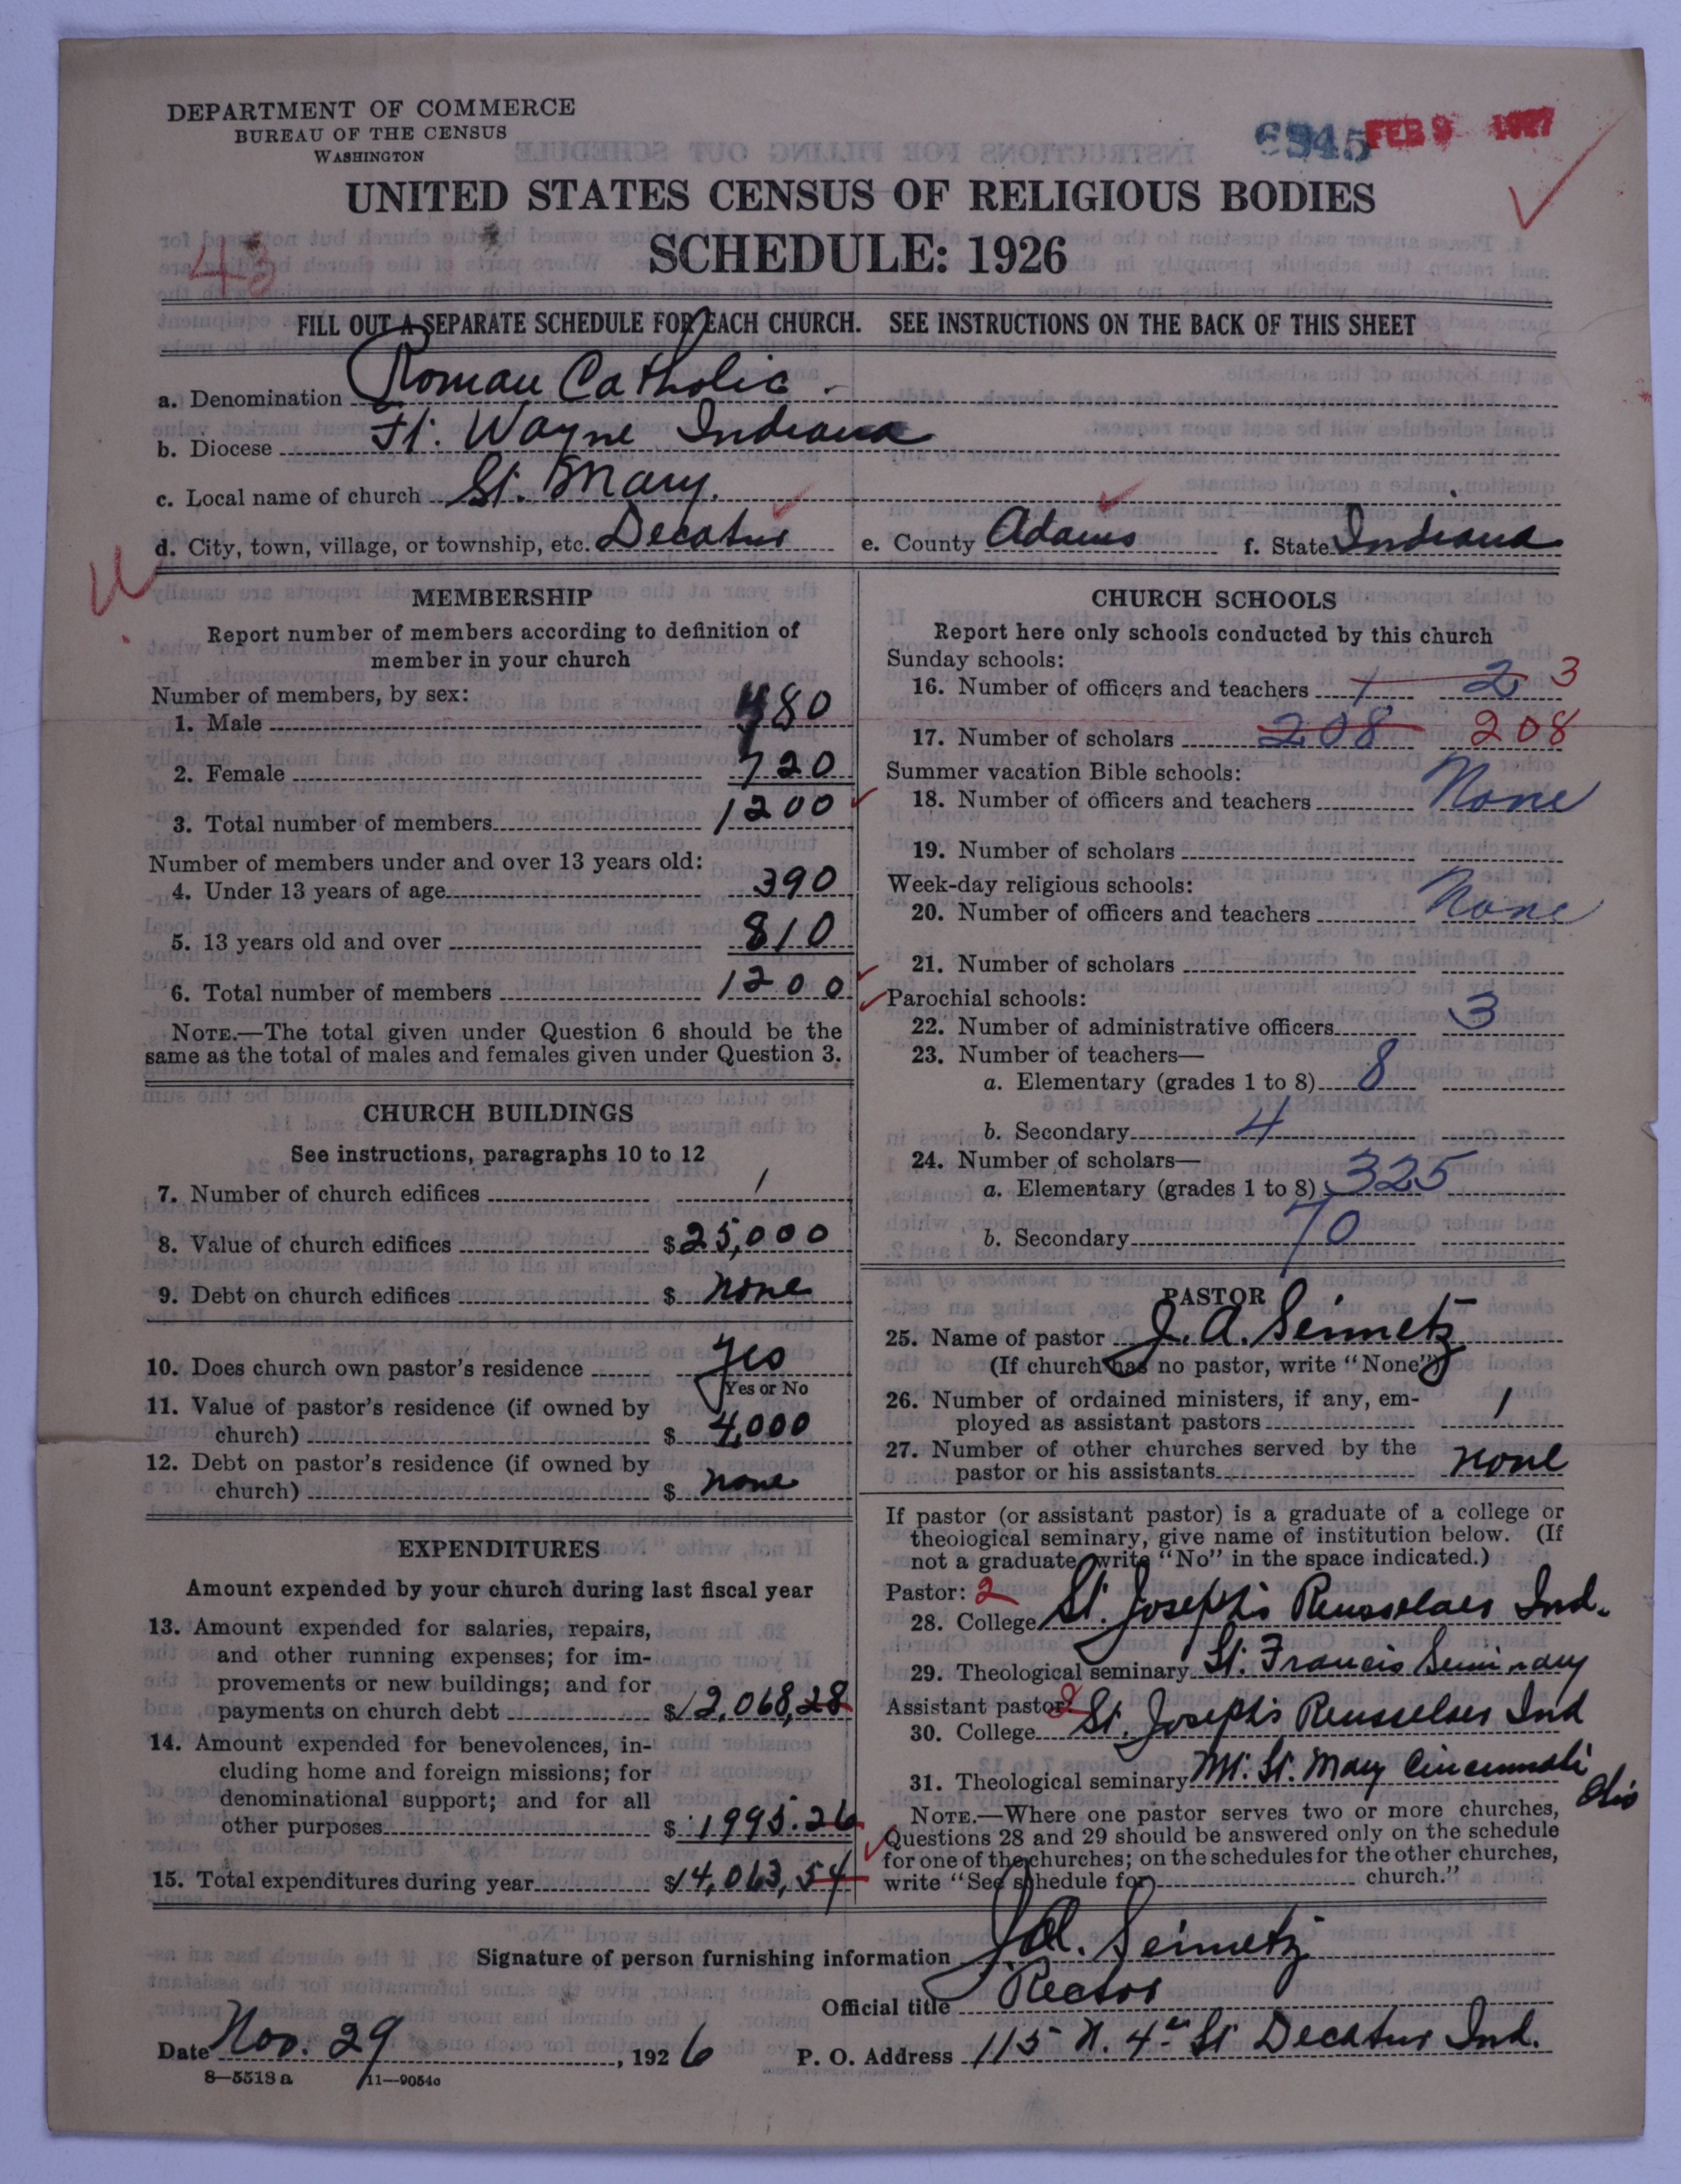 DEPARTMENT OF COMMERCE
BUREAU OF THE CENSUS
WASHINGTON
6945 FEB 9 1927
UNITED STATES CENSUS OF RELIGIOUS BODIES
SCHEDULE: 1926
43
FILL OUT A SEPARATE SCHEDULE FOR EACH CHURCH. SEE INSTRUCTIONS ON THE BACK OF THIS SHEET
a. Denomination Roman Catholic
b. Diocese Ft. Wayne Indiana
c. Local name of church St. Mary.
d. City, town, village, or township, etc. Decatur e. County Adams f. State Indiana
MEMBERSHIP
Report number of members according to definition of
member in your church
Number of members, by sex:
1. Male 480
2. Female 720
3. Total number of members 1200
Number of members under and over 13 years old:
4. Under 13 years of age 390
5. 13 years old and over 810
6. Total number of members 1200
NOTE.—The total given under Question 6 should be the
same as the total of males and females given under Question 3.
CHURCH BUILDINGS
See instructions, paragraphs 10 to 12
7. Number of church edifices 1
8. Value of church edifices $25,000
9. Debt on church edifices $ none
10. Does church own pastor's residence Yes
Yes or No
11. Value of pastor's residence (if owned by
church) $ 4,000
12. Debt on pastor's residence (if owned by
church) $ none
EXPENDITURES
Amount expended by your church during last fiscal year
13. Amount expended for salaries, repairs,
and other running expenses; for im-
provements or new buildings; and for
payments on church debt $12,068,28
14. Amount expended for benevolences, in-
cluding home and foreign missions; for
denominational support; and for all
other purposes $ 1995.26
15. Total expenditures during year $14,063,54
CHURCH SCHOOLS
Report here only schools conducted by this church
Sunday schools:
16. Number of officers and teachers 1 2 3
17. Number of scholars 208 208
Summer vacation Bible schools:
18. Number of officers and teachers None
19. Number of scholars
Week-day religious schools:
20. Number of officers and teachers None
21. Number of scholars
Parochial schools:
22. Number of administrative officers 3
23. Number of teachers—
a. Elementary (grades 1 to 8) 8
b. Secondary 4
24. Number of scholars—
a. Elementary (grades 1 to 8) 325
b. Secondary 70
PASTOR
25. Name of pastor J. A. Seimetz
(If church has no pastor, write "None")
26. Number of ordained ministers, if any, em-
ployed as assistant pastors 1
27. Number of other churches served by the
pastor or his assistants none
If pastor (or assistant pastor) is a graduate of a college or
theological seminary, give name of institution below. (If
not a graduate, write "No" in the space indicated.)
Pastor: 2
28. College St. Joseph's Rensselaer Ind.
29. Theological seminary St. Francis Seminary
Assistant pastor: 2
30. College St. Joseph's Rensselaer Ind
31. Theological seminary Mt. St. Mary Cincinnati
Ohio
NOTE.—Where one pastor serves two or more churches,
Questions 28 and 29 should be answered only on the schedule
for one of the churches; on the schedules for the other churches,
write "See schedule for church."
Signature of person furnishing information J. A. Seimetz
Official title Rector
Date Nov. 29, 1926 P. O. Address 115 N. 4th St Decatur Ind.
8—5518 a 11—9054c